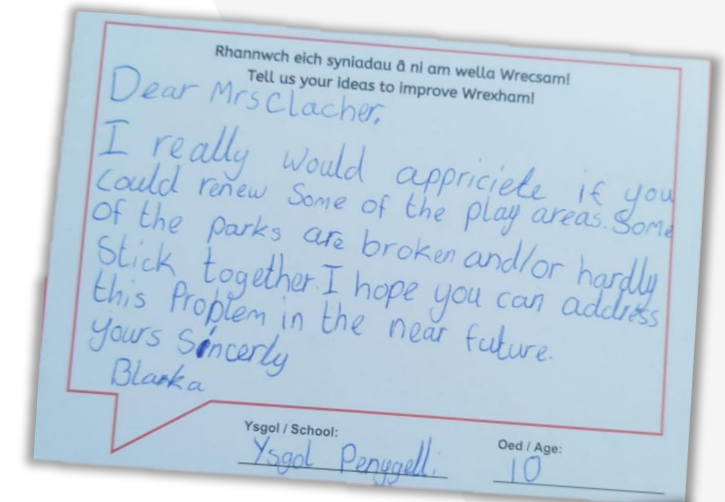 Rhannwch eich syniadau â ni am wella Wrecsam!
Tell us your ideas to improve Wrexham!
Dear Mrs Clacher,
I really would appriciete if you
could renew Some of the play areas. Some
of the parks are broken and/or hardly
Stick together. I hope you can address
this Problem in the near future.
yours Sincerly
Blanka
Ysgol / School:
Ysgol Penygelli
Oed / Age:
10